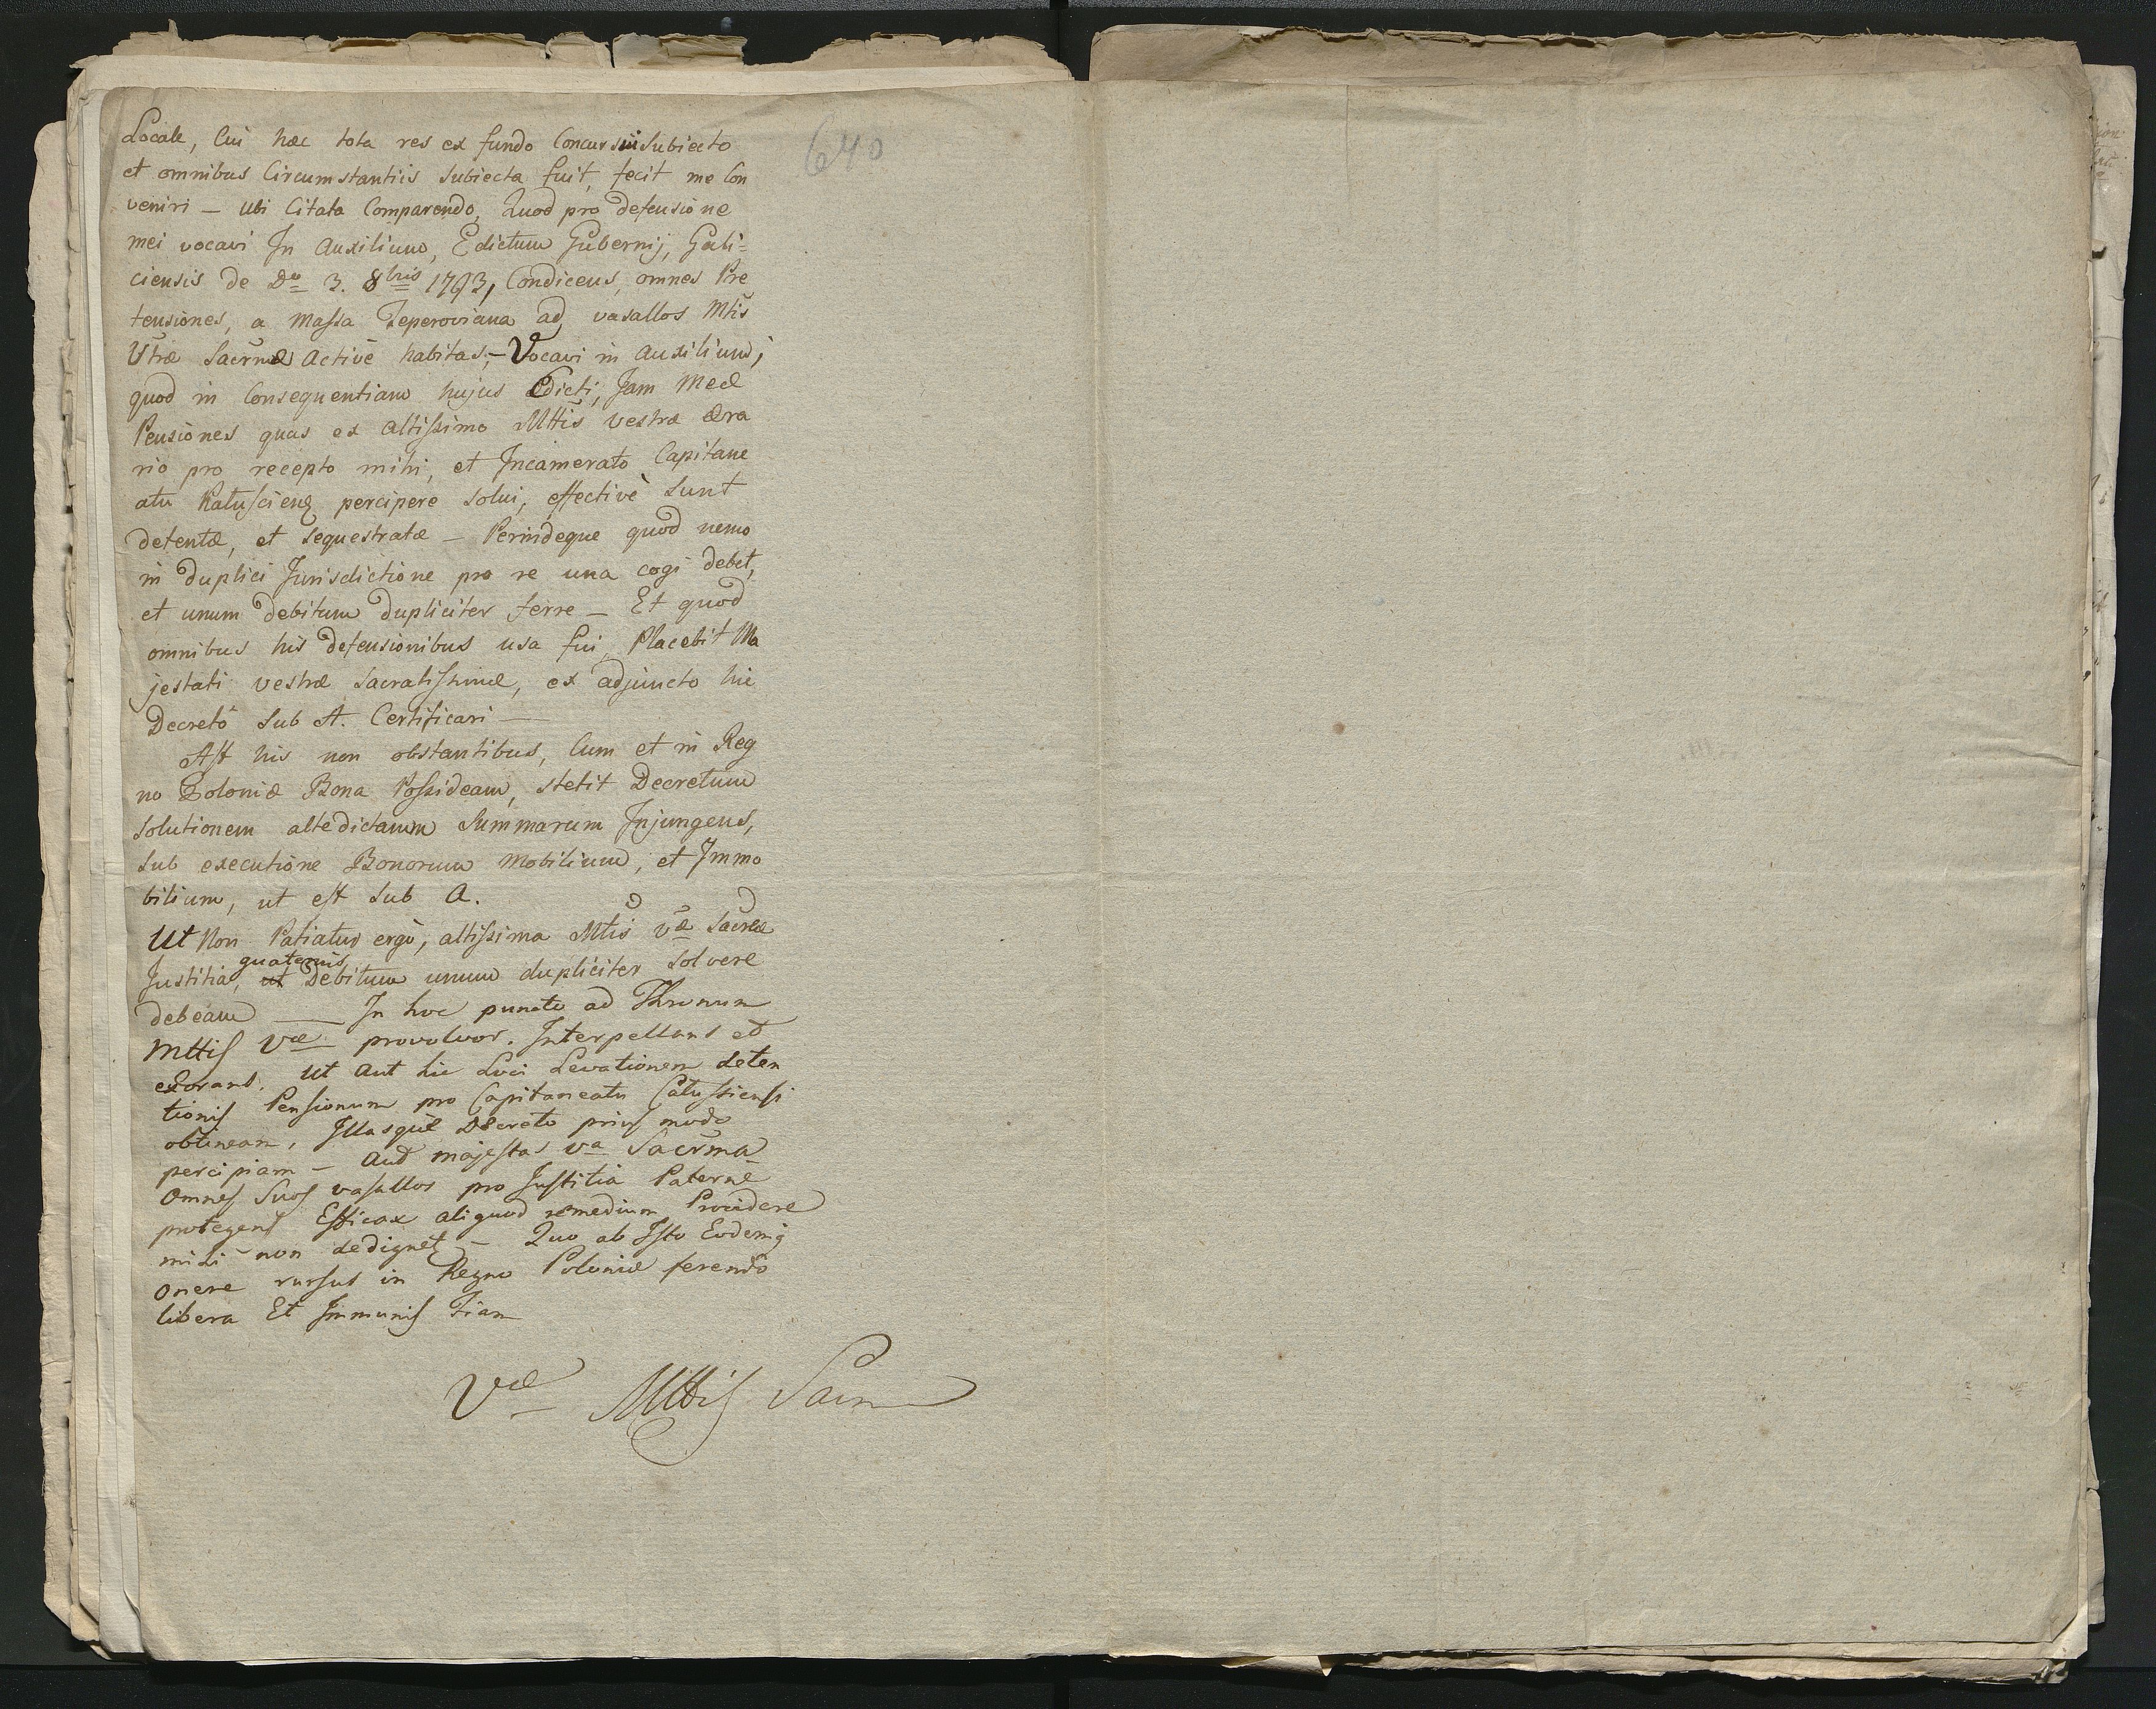 640
Locale, Cui haec tota res ex fundo Concursui Subiecto
et omnibus Circumstantiis Subiecta fuit, fecit me Con
veniri – Ubi Citata Comparendo, Quod pro defensione
mei vocavi In Auxilium, Edictum Gubernij, Gali=
ciensis de Do 3. 8bris 1793, Condicens, omnes Pre
tensiones, a Massa Teperoviana ad vasallos Mtis
Vtrae Sacrmae Active habitas; – Vocavi in Auxilium,
quod in Consequentiam hujus Edicti, Jam Meae
Pensiones quas ex Altissimo Mttis vestrae Aera
rio pro recepto mihi, et Incamerato Capitane
atu percipere Solui, effectivè Sunt
detentae, et Sequestratae – Perindeque quod nemo
in duplici Jurisdictione pro re una cogi debet,
et unum debitum dupliciter ferre – Et quod
omnibus his defensionibus usa fui, Placebit Ma
jestati vestrae Sacratissimae, ex adjuncto hic
Decreto Sub A. Certificari —
Ast his non obstantibus, Cum et in Reg
no Poloniae Bona Possideam, stetit Decretum
Solutionem altedictarum Summarum Injungens,
Sub executione Bonorum Mobilium, et Immo
bilium, ut est Sub A.
Ut Non Patiatur ergò, altissima Mtis vae Sacrae
Justitia, ut quatenus Debitum unum dupliciter Solvere
debeam — In hoc puncto ad Thronum
Mttis Vae provolvor. Interpellans et
exorans. Ut Aut hic Loci Levationem deten
tionis Pensionum pro Capitaneatu
obtineam, Illasque Decreto prius modo
percipiam – Aut majestas va Sacrma
Omnes Suos vasallos pro Justitia Paterne
protegens Efficax aliquod remedium Providere
mihi non dedignetr – Quo ab Isto Eodemq
onere rursus in Regno Poloniae ferendo
libera Et Immunis Fiam
Vae Mttis Sacr